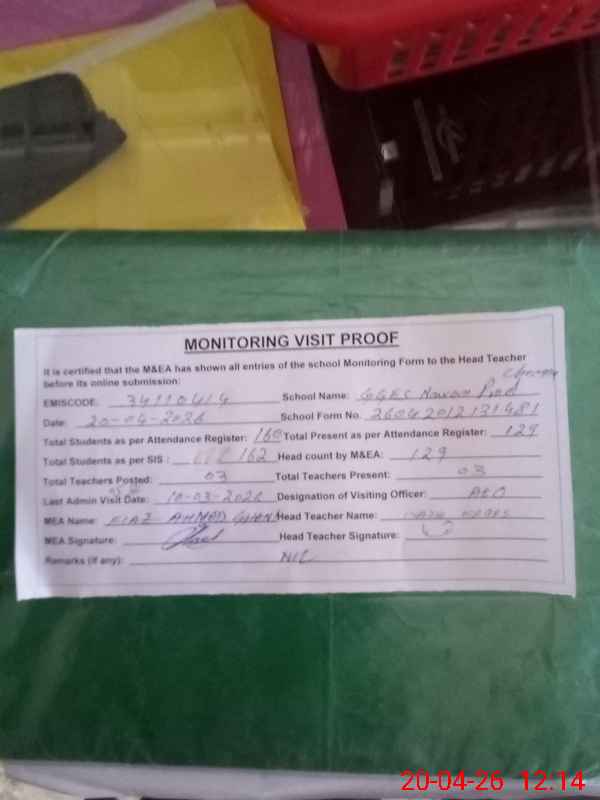 MONITORING VISIT PROOF
It is certified that the M&EA has shown all entries of the school Monitoring Form to the Head Teacher
before its online submission:
EMISCODE: 34110414 School Name: GGES Nawan Pind
Date: 20-04-2026 School Form No. 26042012131481
Total Students as per Attendance Register: 160 Total Present as per Attendance Register: 129
Total Students as per SIS: 162 Head count by M&EA: 129
Total Teachers Posted: 03 Total Teachers Present: 03
Last Admin Visit Date: 10-03-2026 Designation of Visiting Officer: AEO
MEA Name: AHMED Head Teacher Name:
MEA Signature: Head Teacher Signature:
Remarks (if any): NIL
20-04-26 12.14